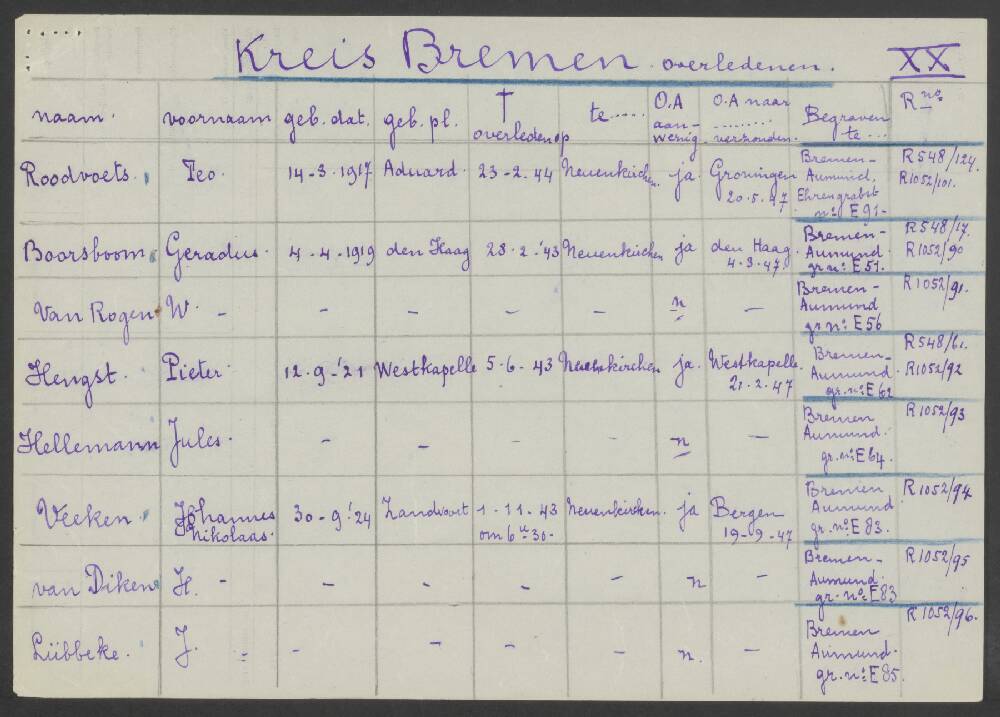 Kreis Bremen overledenen. XX
naam. voornaam geb. dat. geb. pl. † overleden op te ..... O.A aan- wezig. O.A naar ........ verzonden. Begraven te ... R no.
Roodvoets. Teo. 14-3-1917 Aduard. 23-2.44 Neuenkirchen. ja Groningen 20.5.47 Bremen- Aumund. Ehrengrabst no: E91- R548/124. R1052/101.
Boorsboom. Geradus. 4-4-1919 den Haag 28-2-'43 Neuenkirchen ja den Haag. 4-3-47 Bremen- Aumund. gr. no: E51. R548/17. R1052/90
Van Rogen W. - - - - - n - Bremen- Aumund gr. no: E56 R1052/91.
Hengst. Pieter. 12-9-'21 Westkapelle 5-6-43 Neuenkirchen ja. Westkapelle. 21-2-47 Bremen- Aumund. gr. no: E62 R548/61. R1052/92
Hellemann Jules. - - - - n - Bremen Aumund. gr. no: E64. R1052/93
Veeken. Johannes Nikolaas. 30-9-'24 Zandvoort 1-11-43 om 6 u 30- Neuenkirchen. ja Bergen 19-9-47 Bremen Aumund gr. no: E83. R1052/94
van Diken H. - - - - - n - Bremen- Aumund. gr. no: E83 R1052/95
Lübbeke. J. - - - - - n. - Bremen Aumund. gr. no: E85. R1052/96.